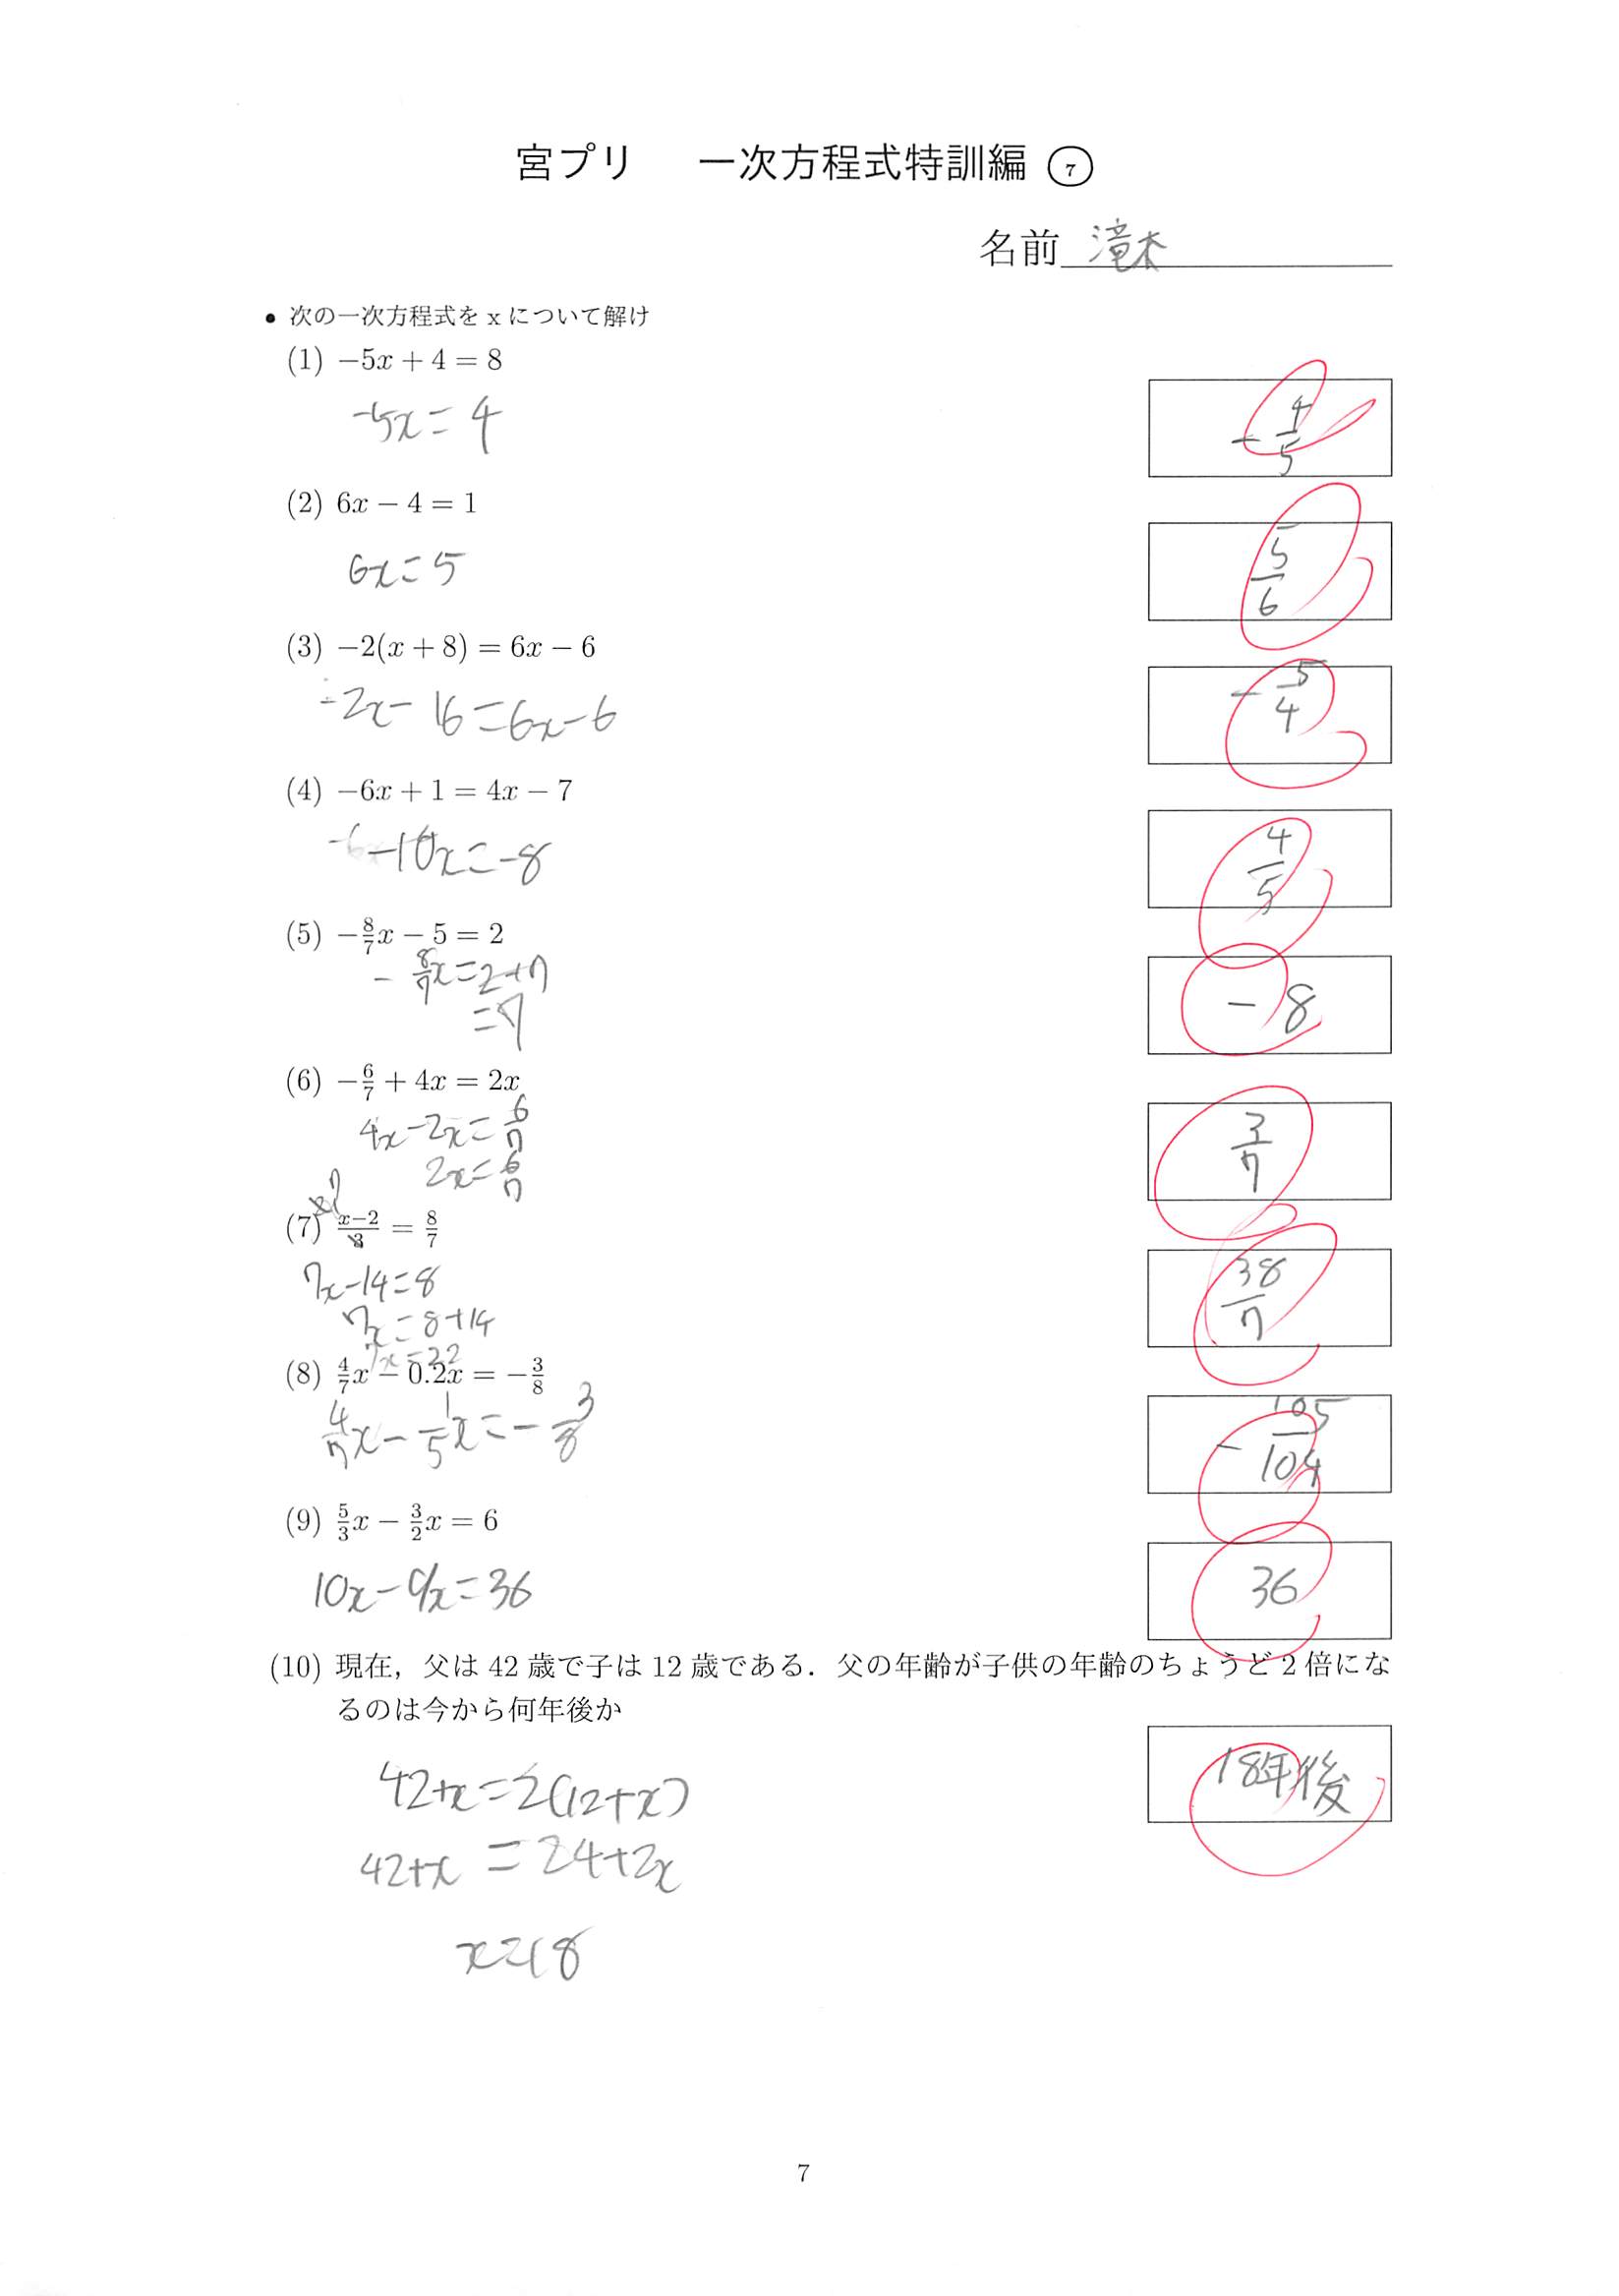 宮プリ 一次方程式特訓編 ⑦
名前 滝本
● 次の一次方程式を x について解け
(1) −5x + 4 = 8
-5x = 4
-4/5
(2) 6x − 4 = 1
6x = 5
5/6
(3) −2(x + 8) = 6x − 6
-2x - 16 = 6x - 6
-5/4
(4) −6x + 1 = 4x − 7
-10x = -8
4/5
(5) −8/7x − 5 = 2
- 8/7x = 2+7
= 7
- 8
(6) −6/7 + 4x = 2x
4x - 2x = 6/7
2x = 6/7
3/7
(7) x−2/3 = 8/7
7x - 14 = 8
7x = 8 + 14
7x = 22
38/7
(8) 4/7x − 0.2x = −3/8
4/7x - 1/5x = - 3/8
- 105/104
(9) 5/3x − 3/2x = 6
10x - 9x = 36
36
(10) 現在，父は 42 歳で子は 12 歳である．父の年齢が子供の年齢のちょうど 2 倍にな
るのは今から何年後か
18年後
42+x = 2(12+x)
42+x = 24+2x
x = 18
7